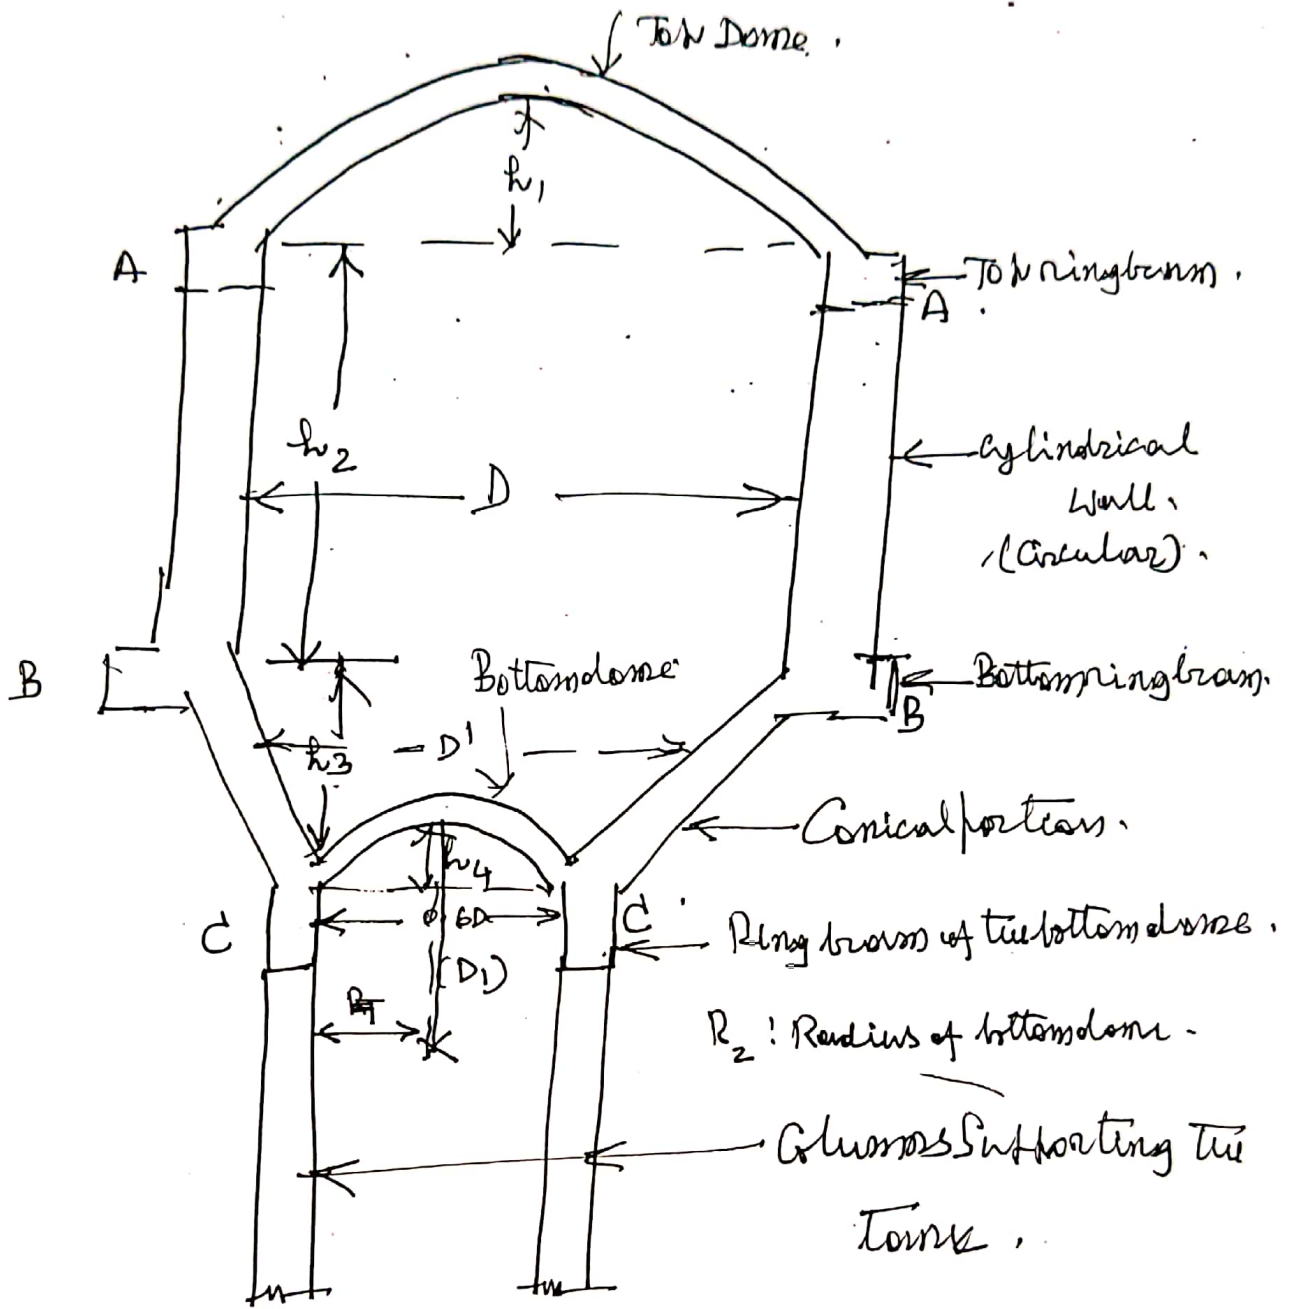 Top Dome.
h1
A
Top ringbeam.
A
h2
D
Cylindrical
Wall.
(Circular).
B
Bottomdome
Bottomringbeam.
B
h3
D'
Conical portion.
h4
C
C
0.6D
Ring beam of the bottom dome.
(D1)
R2 : Radius of bottomdome.
Columns Supporting the
Tank.